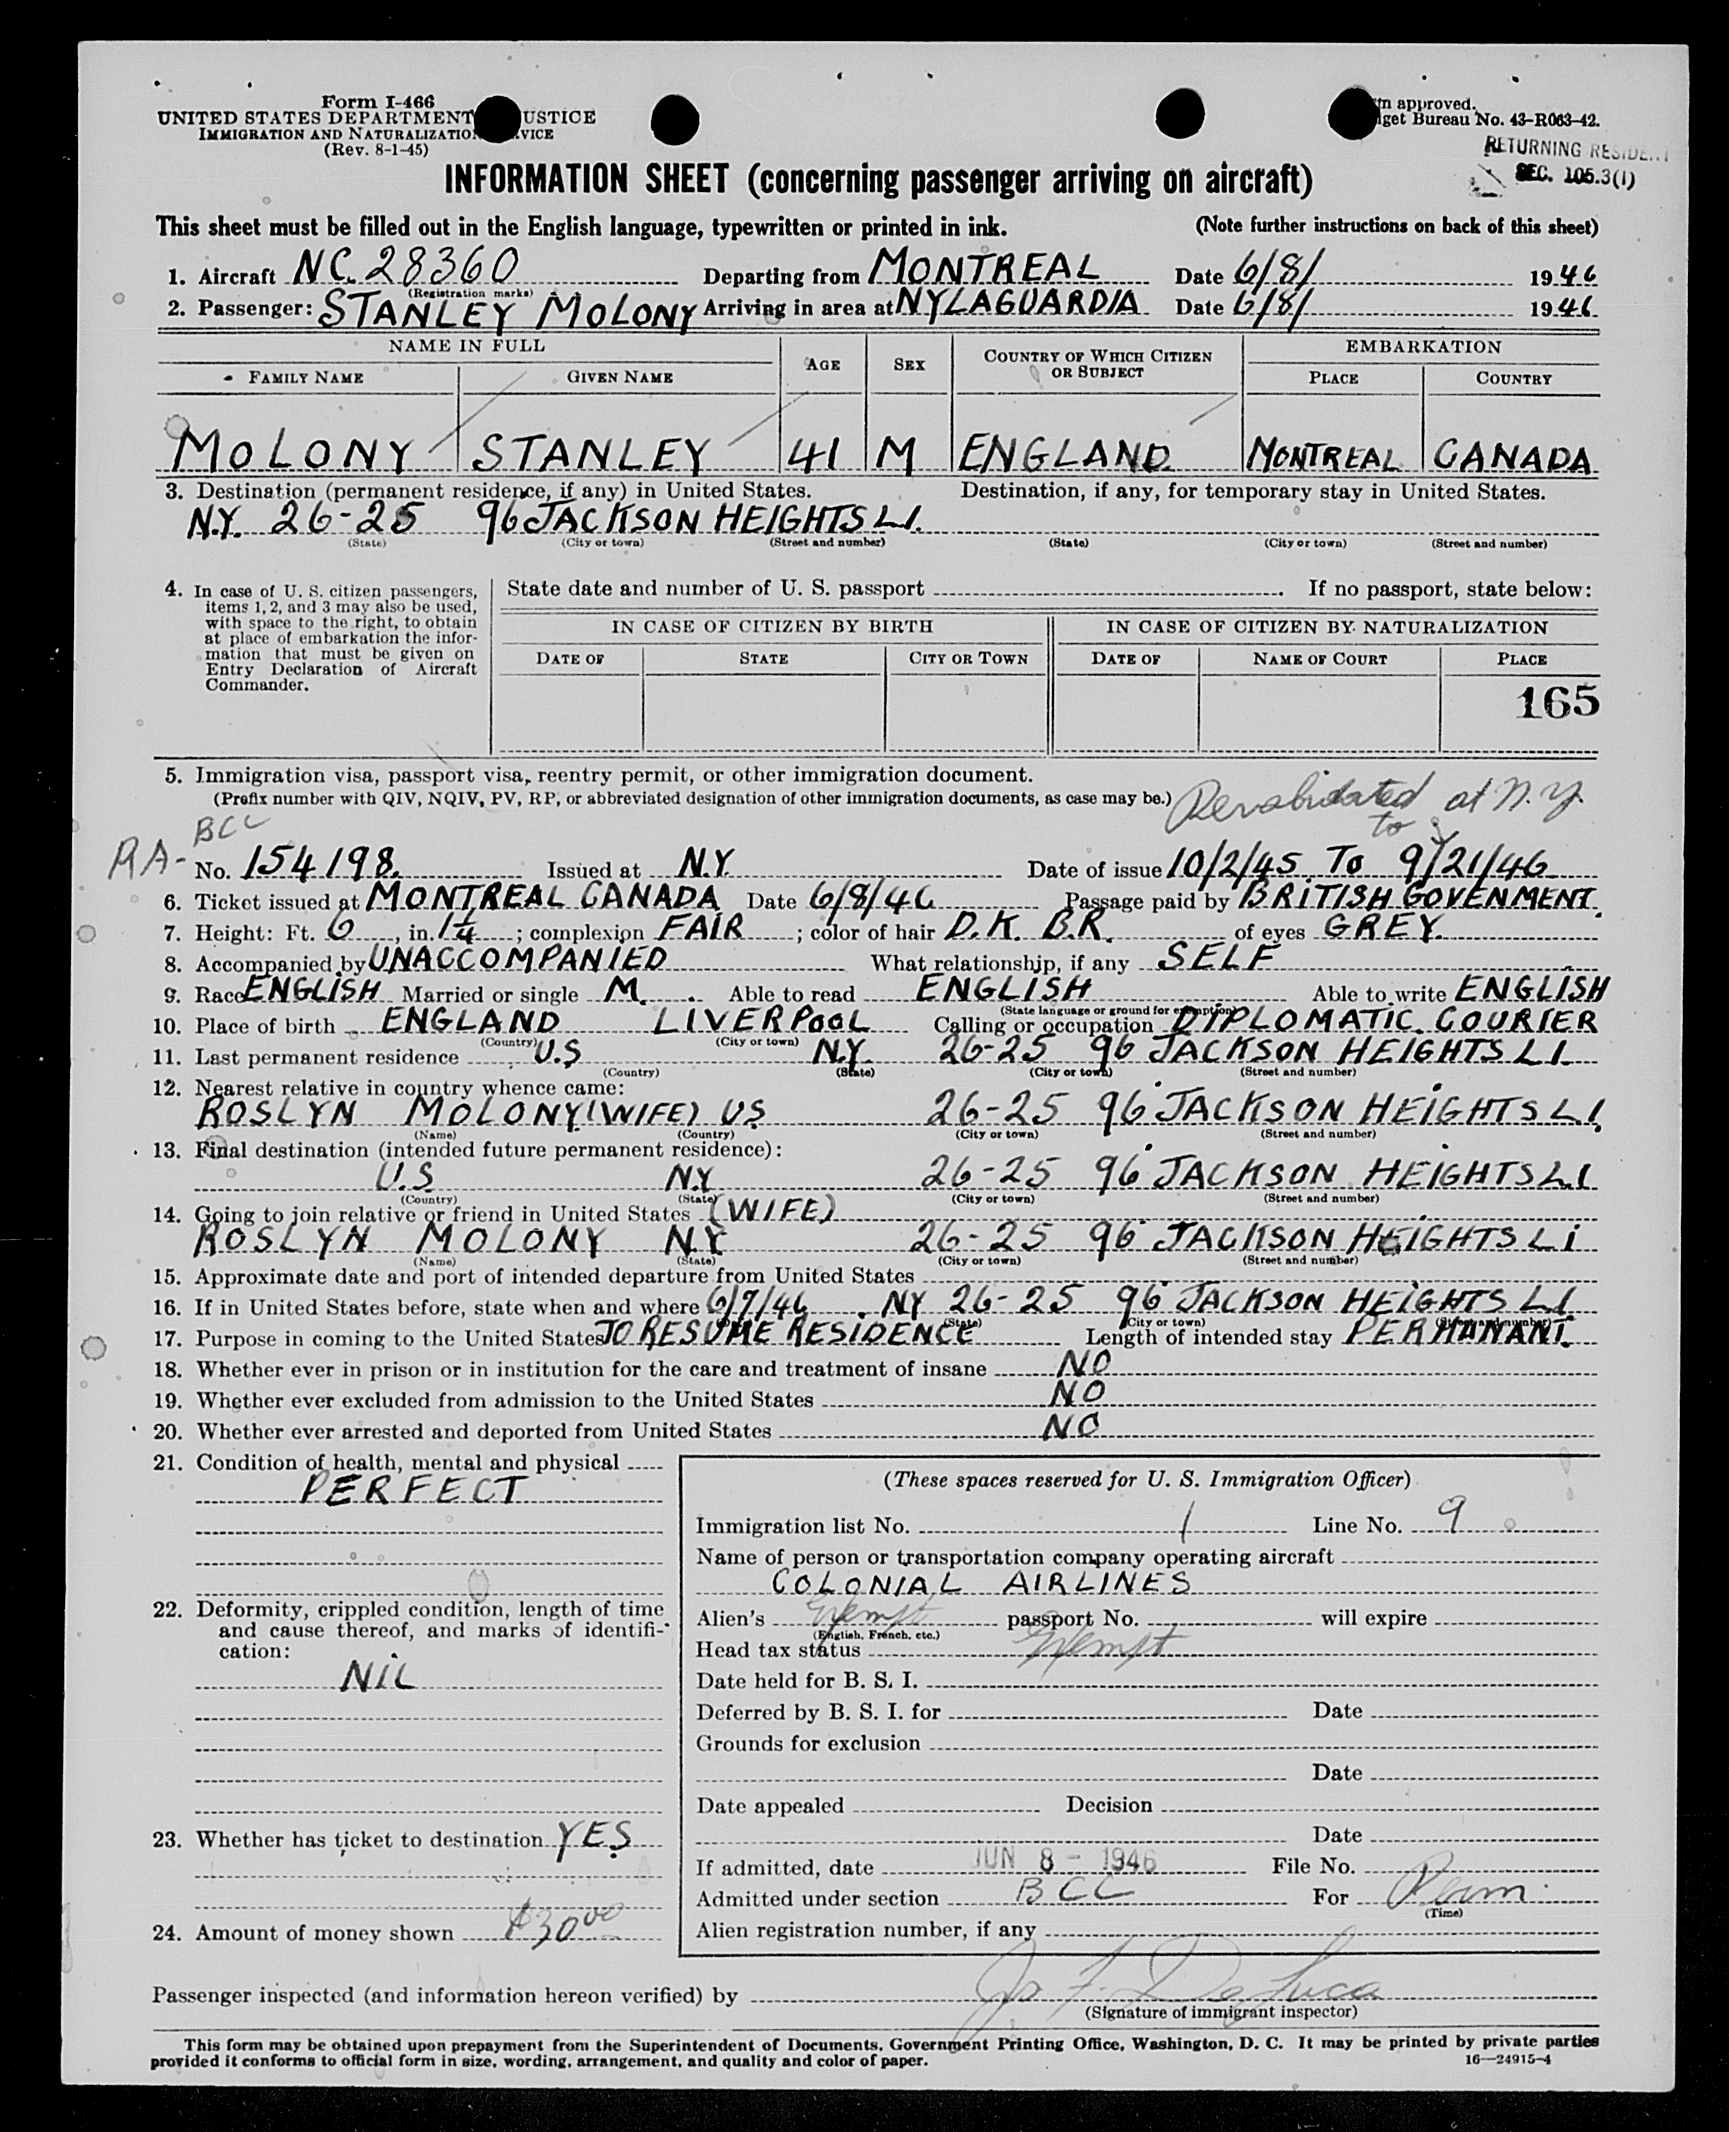 Form I-466
UNITED STATES DEPARTMENT USTICE
IMMIGRATION AND NATURALIZATIO VICE
(Rev. 8-1-45)
m approved.
get Bureau No. 43-R063-42.
RETURNING RESIDE
SEC. 105.3(1)
INFORMATION SHEET (concerning passenger arriving on aircraft)
This sheet must be filled out in the English language, typewritten or printed in ink. (Note further instructions on back of this sheet)
1. Aircraft NC 28360 Departing from MONTREAL Date 6/8/ 1946
(Registration marks)
2. Passenger: STANLEY MOLONY Arriving in area at NYLAGUARDIA Date 6/8/ 1946
NAME IN FULL AGE SEX COUNTRY OF WHICH CITIZEN OR SUBJECT EMBARKATION
FAMILY NAME GIVEN NAME PLACE COUNTRY
MOLONY STANLEY 41 M ENGLAND MONTREAL CANADA
3. Destination (permanent residence, if any) in United States. Destination, if any, for temporary stay in United States.
N.Y. 26-25 96 JACKSON HEIGHTS L.I.
(State) (City or town) (Street and number) (State) (City or town) (Street and number)
4. In case of U. S. citizen passengers, items 1, 2, and 3 may also be used, with space to the right, to obtain at place of embarkation the information that must be given on Entry Declaration of Aircraft Commander.
State date and number of U. S. passport . If no passport, state below:
IN CASE OF CITIZEN BY BIRTH IN CASE OF CITIZEN BY NATURALIZATION
DATE OF STATE CITY OR TOWN DATE OF NAME OF COURT PLACE
165
5. Immigration visa, passport visa, reentry permit, or other immigration document.
(Prefix number with QIV, NQIV, PV, RP, or abbreviated designation of other immigration documents, as case may be.) Revalidated at N.Y.
to
BCC
RA- No. 154198. Issued at N.Y. Date of issue 10/2/45 To 9/21/46
6. Ticket issued at MONTREAL CANADA Date 6/8/46 Passage paid by BRITISH GOVENMENT.
7. Height: Ft. 6, in. 1 1/4; complexion FAIR; color of hair D.K. B.R. of eyes GREY.
8. Accompanied by UNACCOMPANIED What relationship, if any SELF
9. Race ENGLISH Married or single M. Able to read ENGLISH Able to write ENGLISH
(State language or ground for exemption)
10. Place of birth ENGLAND LIVERPOOL Calling or occupation DIPLOMATIC COURIER
(Country) (City or town)
11. Last permanent residence U.S N.Y. 26-25 96 JACKSON HEIGHTS L.I.
(Country) (State) (City or town) (Street and number)
12. Nearest relative in country whence came:
ROSLYN MOLONY (WIFE) U.S 26-25 96 JACKSON HEIGHTS L.I.
(Name) (Country) (City or town) (Street and number)
13. Final destination (intended future permanent residence):
U.S. N.Y 26-25 96 JACKSON HEIGHTS L.I
(Country) (State) (City or town) (Street and number)
14. Going to join relative or friend in United States (WIFE)
ROSLYN MOLONY N.Y 26-25 96 JACKSON HEIGHTS L i
(Name) (State) (City or town) (Street and number)
15. Approximate date and port of intended departure from United States
16. If in United States before, state when and where 6/7/46 . NY 26-25 96 JACKSON HEIGHTS L.I
(State) (City or town) (Street and number)
17. Purpose in coming to the United States TO RESUME RESIDENCE Length of intended stay PERMANANT.
18. Whether ever in prison or in institution for the care and treatment of insane NO
19. Whether ever excluded from admission to the United States NO
20. Whether ever arrested and deported from United States NO
21. Condition of health, mental and physical
PERFECT
22. Deformity, crippled condition, length of time and cause thereof, and marks of identification:
NIL
23. Whether has ticket to destination YES
24. Amount of money shown $30.00
(These spaces reserved for U. S. Immigration Officer)
Immigration list No. 1 Line No. 9
Name of person or transportation company operating aircraft
COLONIAL AIRLINES
Alien's Exempt passport No. will expire
(English, French, etc.)
Head tax status Exempt
Date held for B. S. I.
Deferred by B. S. I. for Date
Grounds for exclusion
Date
Date appealed Decision
Date
If admitted, date JUN 8 - 1946 File No.
Admitted under section BCC For Perm.
(Time)
Alien registration number, if any
Passenger inspected (and information hereon verified) by J. F. DeLuca
(Signature of immigrant inspector)
This form may be obtained upon prepayment from the Superintendent of Documents, Government Printing Office, Washington, D. C. It may be printed by private parties
provided it conforms to official form in size, wording, arrangement, and quality and color of paper. 16—24915-4